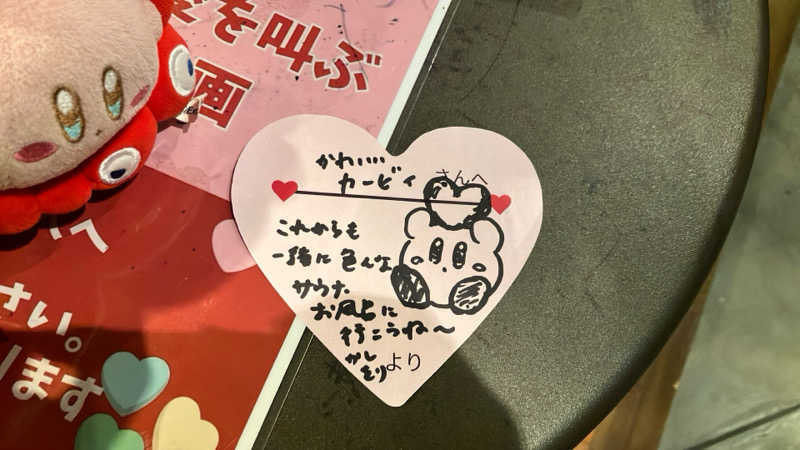 を叫ぶ
画
かわいい
カービィ
さんへ
これからも
一緒に色んな
サウナ
お風呂に
行こうね〜
より
へ
さい。
ります